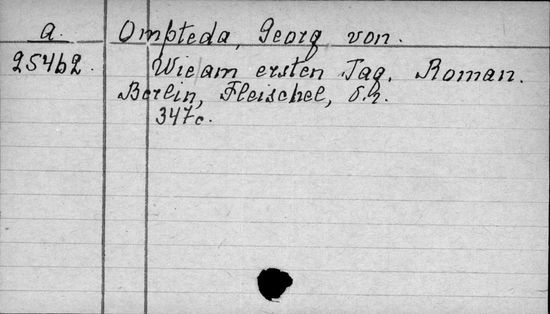 a. Ompteda, Georg von.
25462. Wie am ersten Tag. Roman.
Berlin, Fleischel,
347c.